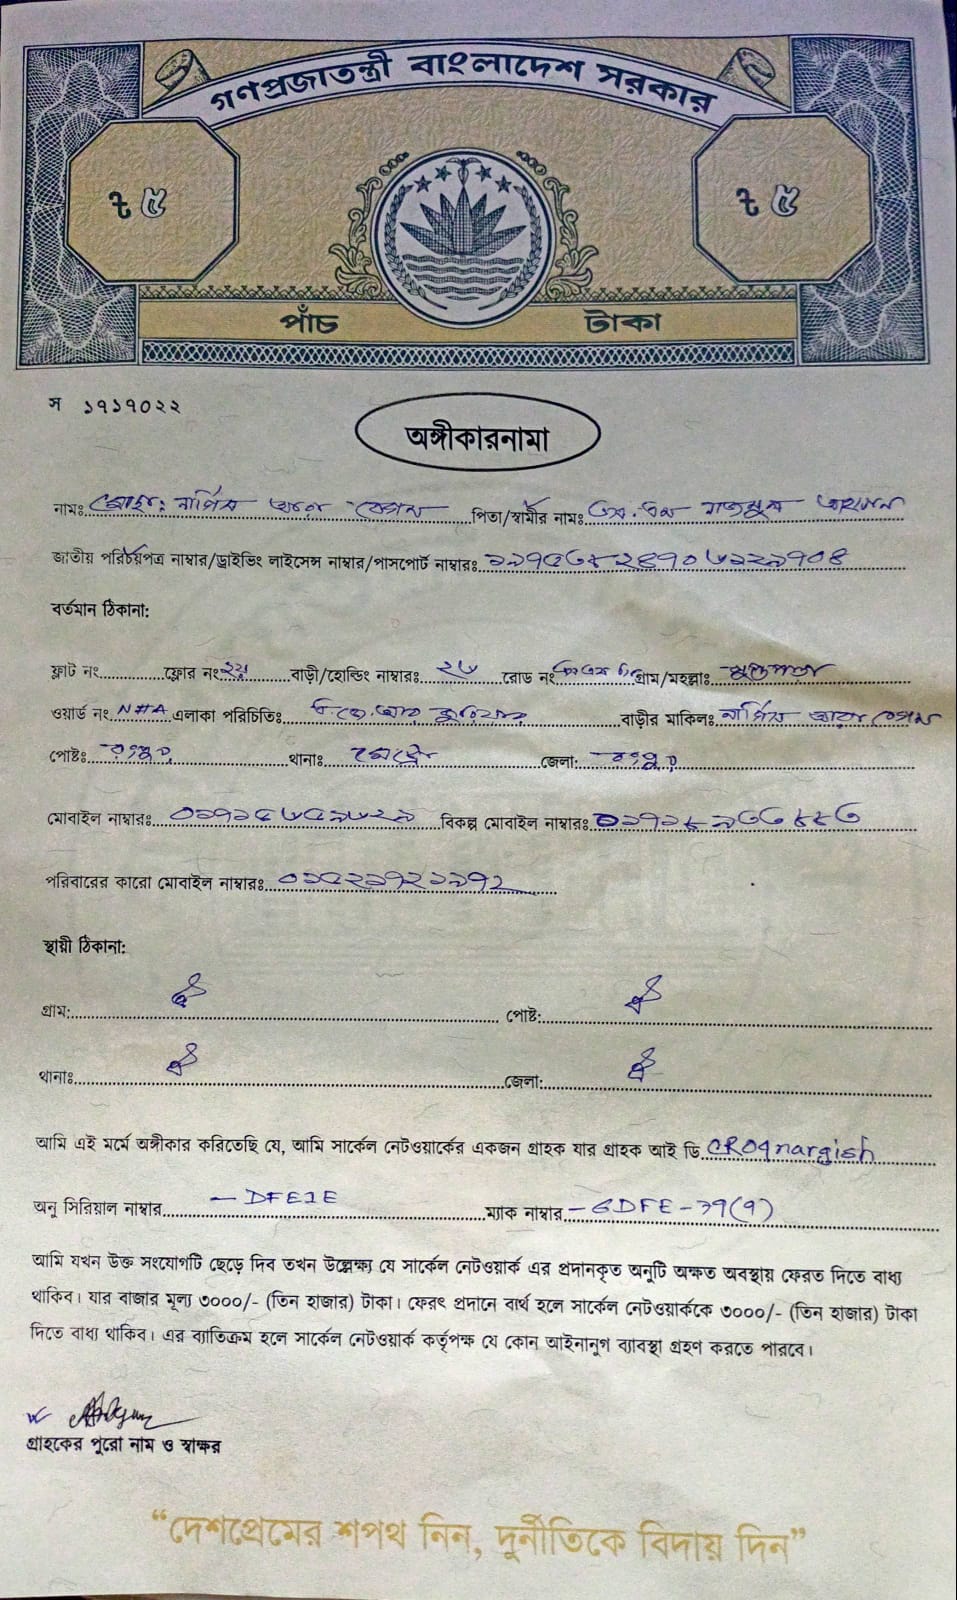 গণপ্রজাতন্ত্রী বাংলাদেশ সরকার
৳ ৫ ৳ ৫
পাঁচ টাকা
স ১৭১৭০২২
অঙ্গীকারনামা
নামঃ মোছা: নার্গিস আরা বেগম পিতা/স্বামীর নামঃ এস. এম
জাতীয় পরিচয়পত্র নাম্বার/ড্রাইভিং লাইসেন্স নাম্বার/পাসপোর্ট নাম্বারঃ
বর্তমান ঠিকানা:
ফ্লাট নং ফ্লোর নং ২য় বাড়ী/হোল্ডিং নাম্বারঃ ২৬ রোড নং গ্রাম/মহল্লাঃ মুন্সিপাড়া
ওয়ার্ড নং এলাকা পরিচিতিঃ বাড়ীর মাকিলঃ নার্গিস আরা বেগম
পোষ্টঃ রংপুর থানাঃ মেট্রো জেলা: রংপুর
মোবাইল নাম্বারঃ ০১৭১৫৬৫৯৬২৯ বিকল্প মোবাইল নাম্বারঃ ০১৭১৮৯৩৩৪৪৩
পরিবারের কারো মোবাইল নাম্বারঃ ০১৫২১৭২১৯৭২
স্থায়ী ঠিকানা:
গ্রাম: ঐ পোষ্ট: ঐ
থানাঃ ঐ জেলা: ঐ
আমি এই মর্মে অঙ্গীকার করিতেছি যে, আমি সার্কেল নেটওয়ার্কের একজন গ্রাহক যার গ্রাহক আই ডি CR09nargish
অনু সিরিয়াল নাম্বার - DFE1E ম্যাক নাম্বার - 6DFE-39(9)
আমি যখন উক্ত সংযোগটি ছেড়ে দিব তখন উল্লেক্ষ্য যে সার্কেল নেটওয়ার্ক এর প্রদানকৃত অনুটি অক্ষত অবস্থায় ফেরত দিতে বাধ্য
থাকিব। যার বাজার মূল্য ৩০০০/- (তিন হাজার) টাকা। ফেরৎ প্রদানে ব্যর্থ হলে সার্কেল নেটওয়ার্ককে ৩০০০/- (তিন হাজার) টাকা
দিতে বাধ্য থাকিব। এর ব্যতিক্রম হলে সার্কেল নেটওয়ার্ক কর্তৃপক্ষ যে কোন আইনানুগ ব্যাবস্থা গ্রহণ করতে পারবে।
গ্রাহকের পুরো নাম ও স্বাক্ষর
“দেশপ্রেমের শপথ নিন, দুর্নীতিকে বিদায় দিন”